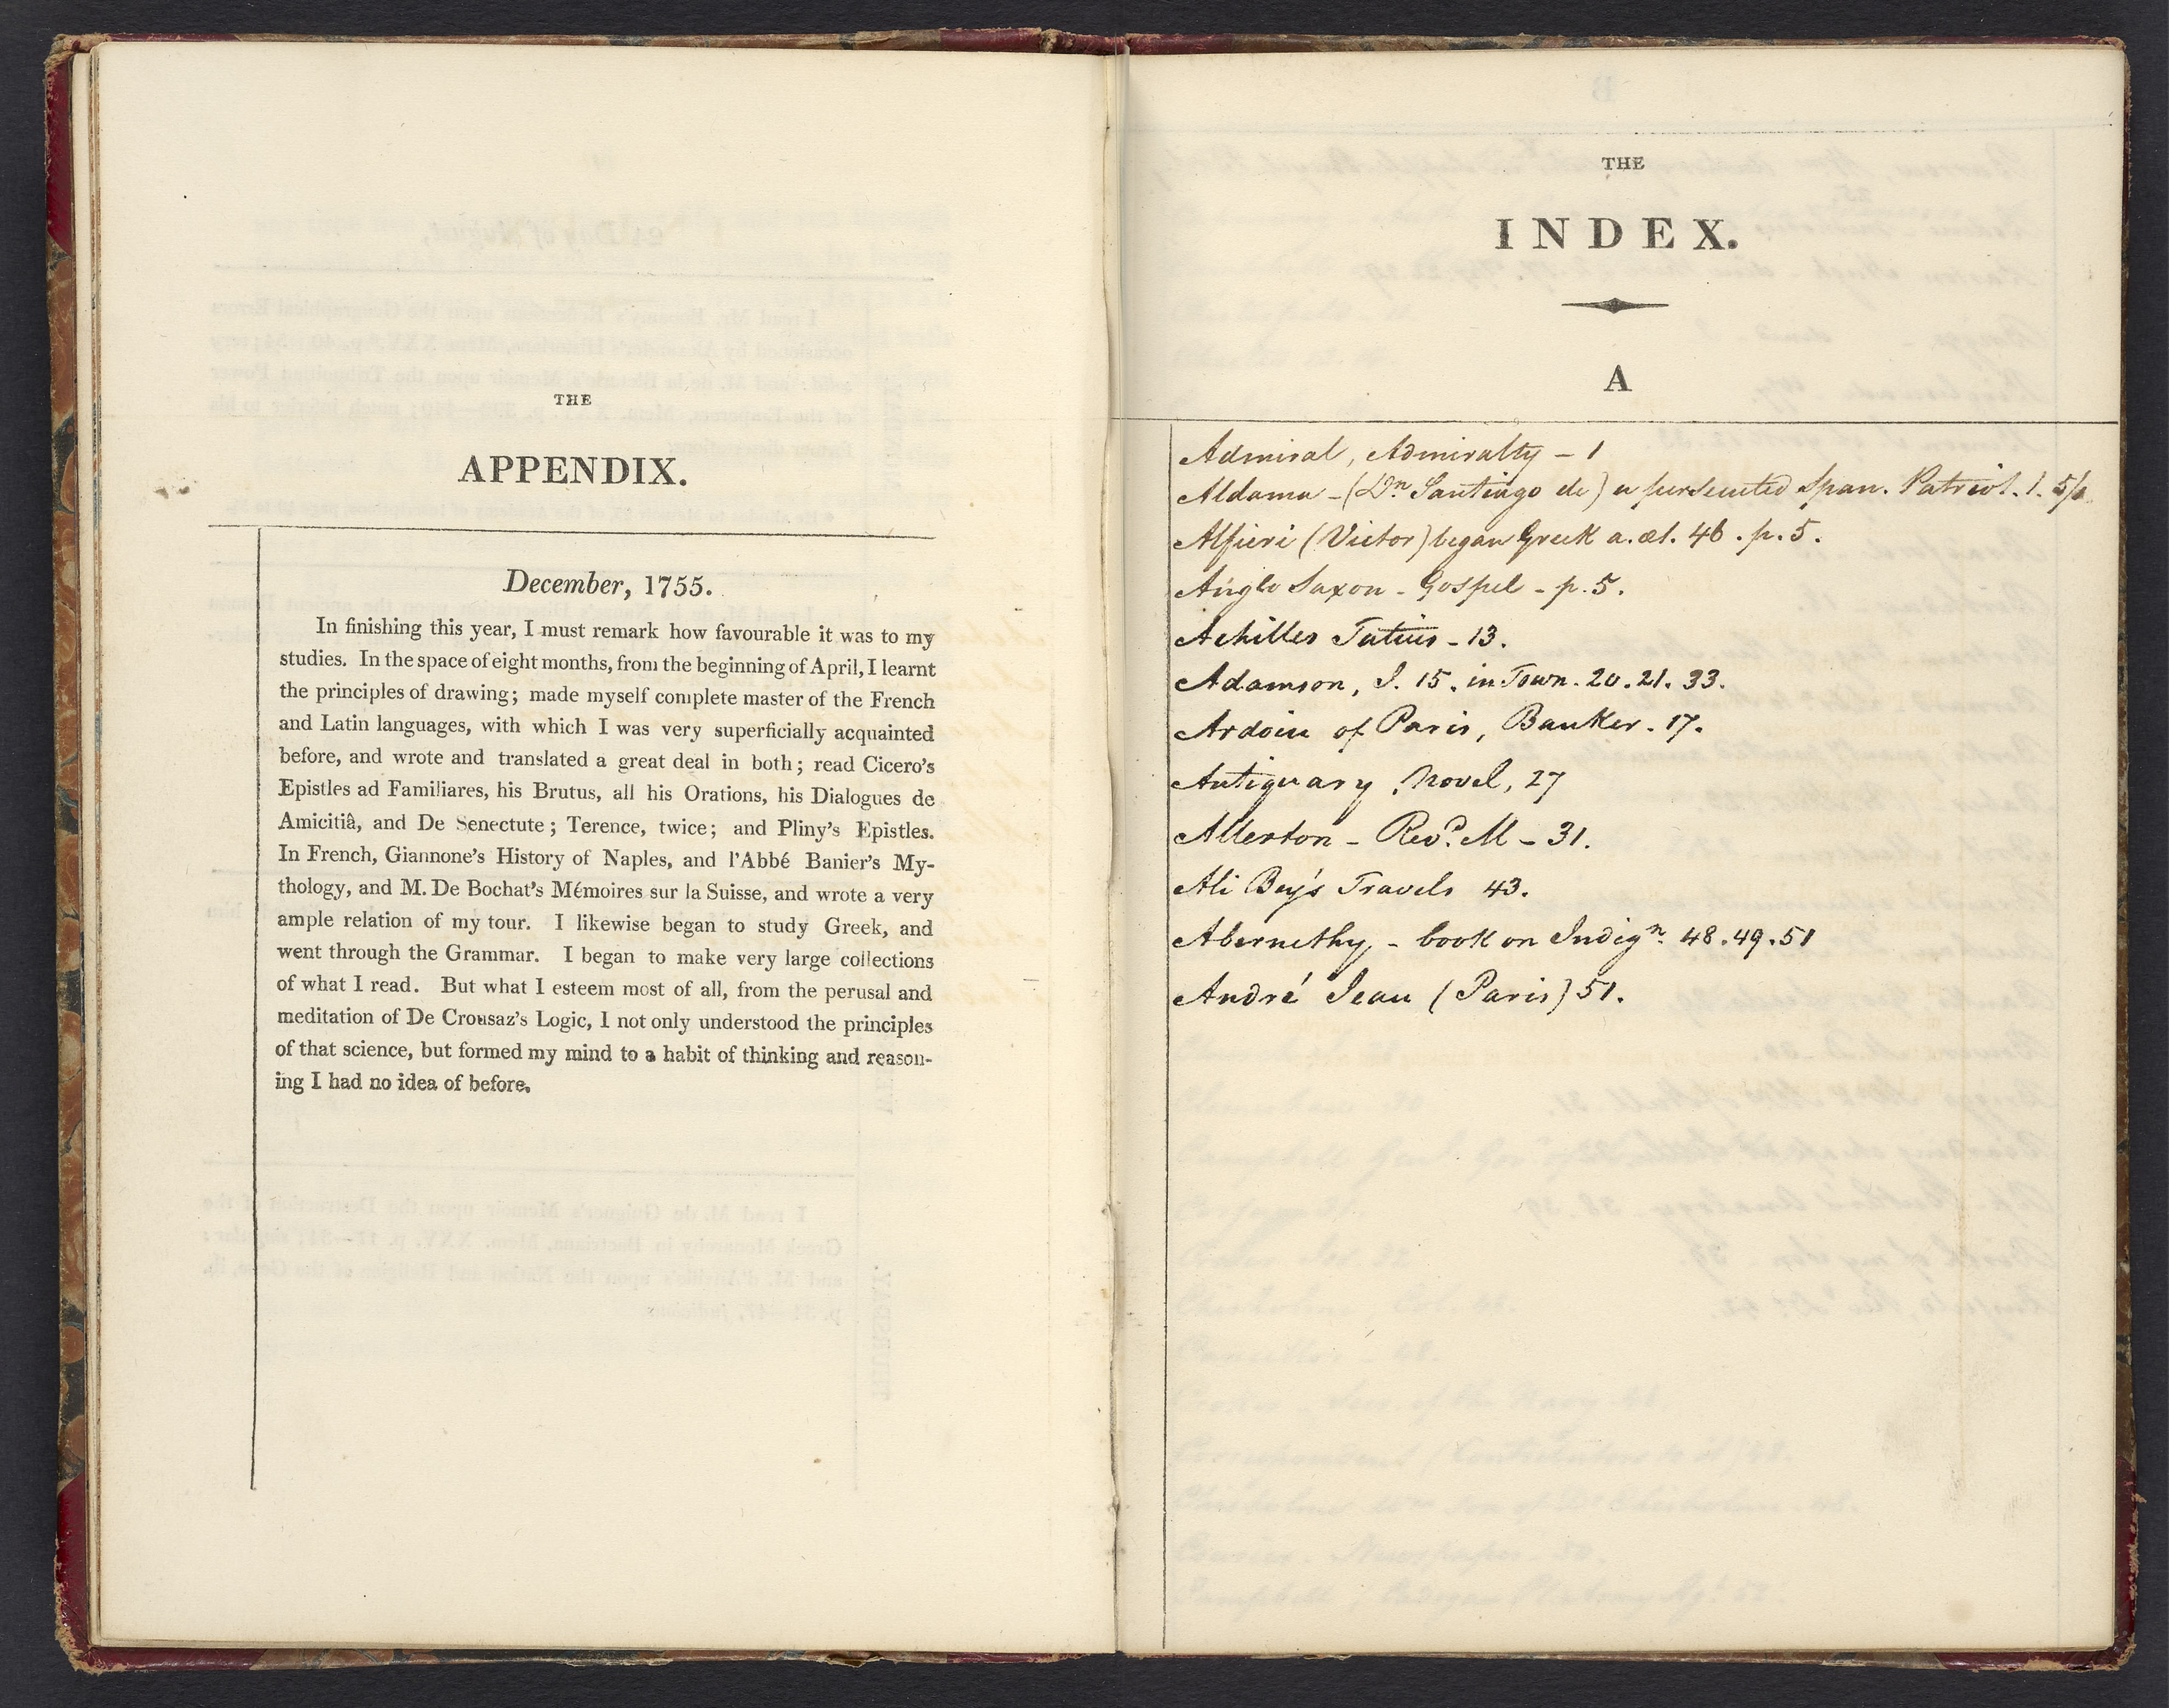 THE
APPENDIX.
December, 1755.
In finishing this year, I must remark how favourable it was to my
studies. In the space of eight months, from the beginning of April, I learnt
the principles of drawing; made myself complete master of the French
and Latin languages, with which I was very superficially acquainted
before, and wrote and translated a great deal in both; read Cicero's
Epistles ad Familiares, his Brutus, all his Orations, his Dialogues de
Amicitiâ, and De Senectute; Terence, twice; and Pliny's Epistles.
In French, Giannone's History of Naples, and l'Abbé Banier's My-
thology, and M. De Bochat's Mémoires sur la Suisse, and wrote a very
ample relation of my tour. I likewise began to study Greek, and
went through the Grammar. I began to make very large collections
of what I read. But what I esteem most of all, from the perusal and
meditation of De Crousaz's Logic, I not only understood the principles
of that science, but formed my mind to a habit of thinking and reason-
ing I had no idea of before.
THE
INDEX.
A
Admiral, Admiralty - 1
Aldama - (Dn Santiago de) a persecuted Span. Patriot. 1.
Alfieri (Victor) began Greek a. æt. 46. p. 5.
Anglo Saxon - Gospel - p. 5.
Achilles Tatius - 13.
Adamson, J. 15. in Town. 20. 21. 33.
Ardoin of Paris, Banker. 17.
Antiquary, Novel, 27
Allerton - Revd. M - 31.
Ali Bey's Travels 43.
Abernethy, - book on Indign. 48. 49. 51
André Jean (Paris) 51.